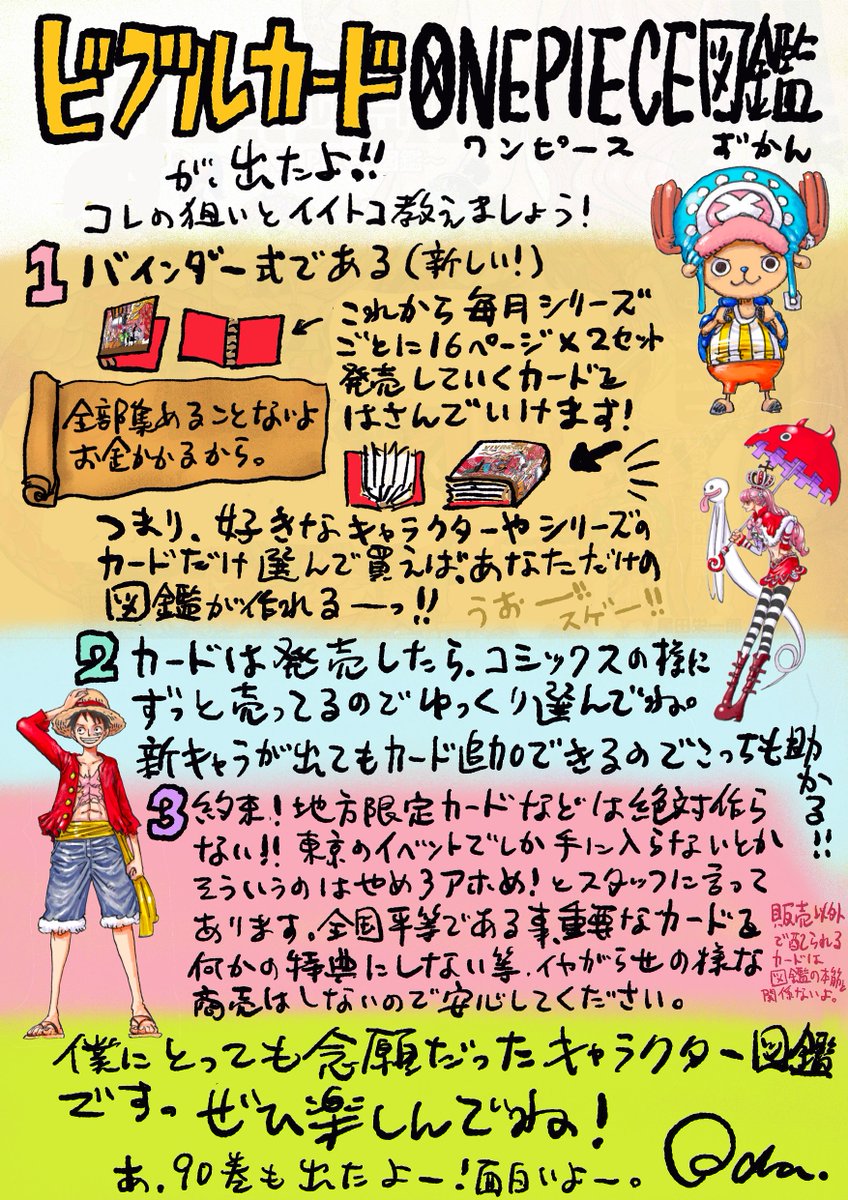 ビブルカード ONEPIECE図鑑
ワンピース ずかん
が、出たよ!!
コレの狙いとイイトコ教えましょう!
1 バインダー式である(新しい!)
これから毎月シリーズ
ごとに16ページ×2セット
発売していくカードを
はさんでいけます!
全部集めることないよ
お金かかるから。
つまり、好きなキャラクターやシリーズの
カードだけ選んで買えば、あなただけの
図鑑が作れるーーっ!!
うおーースゲー!!
2 カードは発売したら、コミックスの様に
ずっと売ってるのでゆっくり選んでね。
新キャラが出てもカード追加できるのでこっちも助かる!!
3 約束!地方限定カードなどは絶対作ら
ない!!東京のイベントでしか手に入らないとか
そういうのはやめろアホめ!とスタッフに言って
あります。全国平等である事、重要なカードを
何かの特典にしない等、イヤがらせの様な
商売はしないので安心してください。
販売以外
で配られる
カードは
図鑑の本筋と
関係ないよ。
僕にとっても念願だったキャラクター図鑑
ですっ ぜひ楽しんでね!
あ、90巻も出たよー!面白いよー。
Oda.